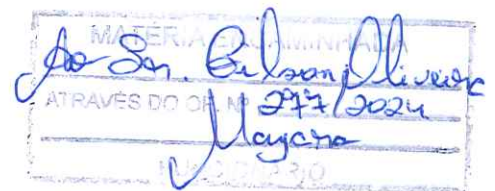 MATÉRIA ENCAMINHADA
Ao Sr. Gilson Oliveira
ATRAVÉS DO OF. Nº 277/2024
Mayara